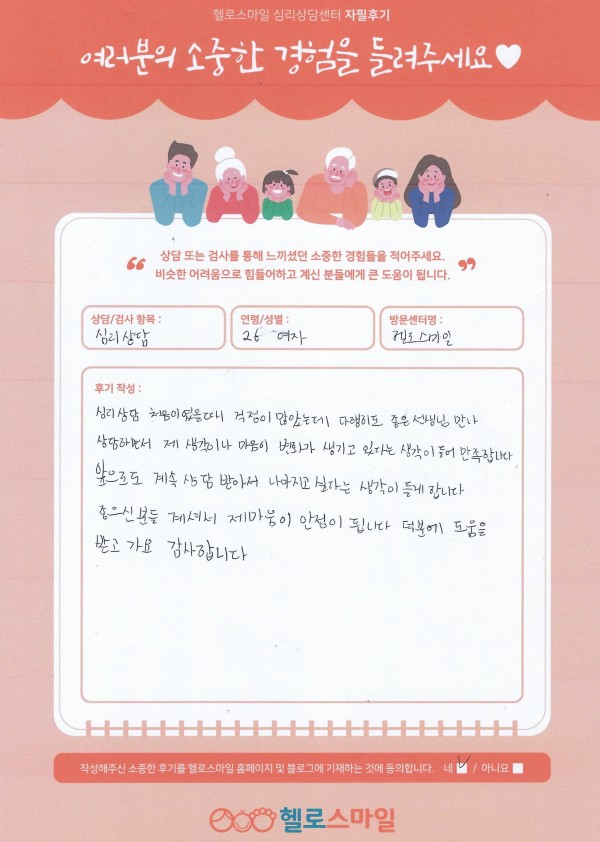 헬로스마일 심리상담센터 자필후기
여러분의 소중한 경험을 들려주세요♥
“ 상담 또는 검사를 통해 느끼셨던 소중한 경험들을 적어주세요.
비슷한 어려움으로 힘들어하고 계신 분들에게 큰 도움이 됩니다. ”
상담/검사 항목 :
심리상담
연령/성별 :
26 여자
방문센터명 :
헬로스마일
후기 작성 :
심리상담 처음이였을때 걱정이 많았는데 다행히도 좋은선생님 만나
상담하면서 제 생각이나 마음이 변화가 생기고 있다는 생각이 들어 만족합니다
앞으로도 계속 상담 받아서 나아지고 싶다는 생각이 들게 합니다
좋으신분들 계셔서 제마음이 안정이 됩니다 덕분에 도움을
받고 가요 감사합니다
작성해주신 소중한 후기를 헬로스마일 홈페이지 및 블로그에 기재하는 것에 동의합니다. 네 ☑ / 아니요 ☐
헬로스마일